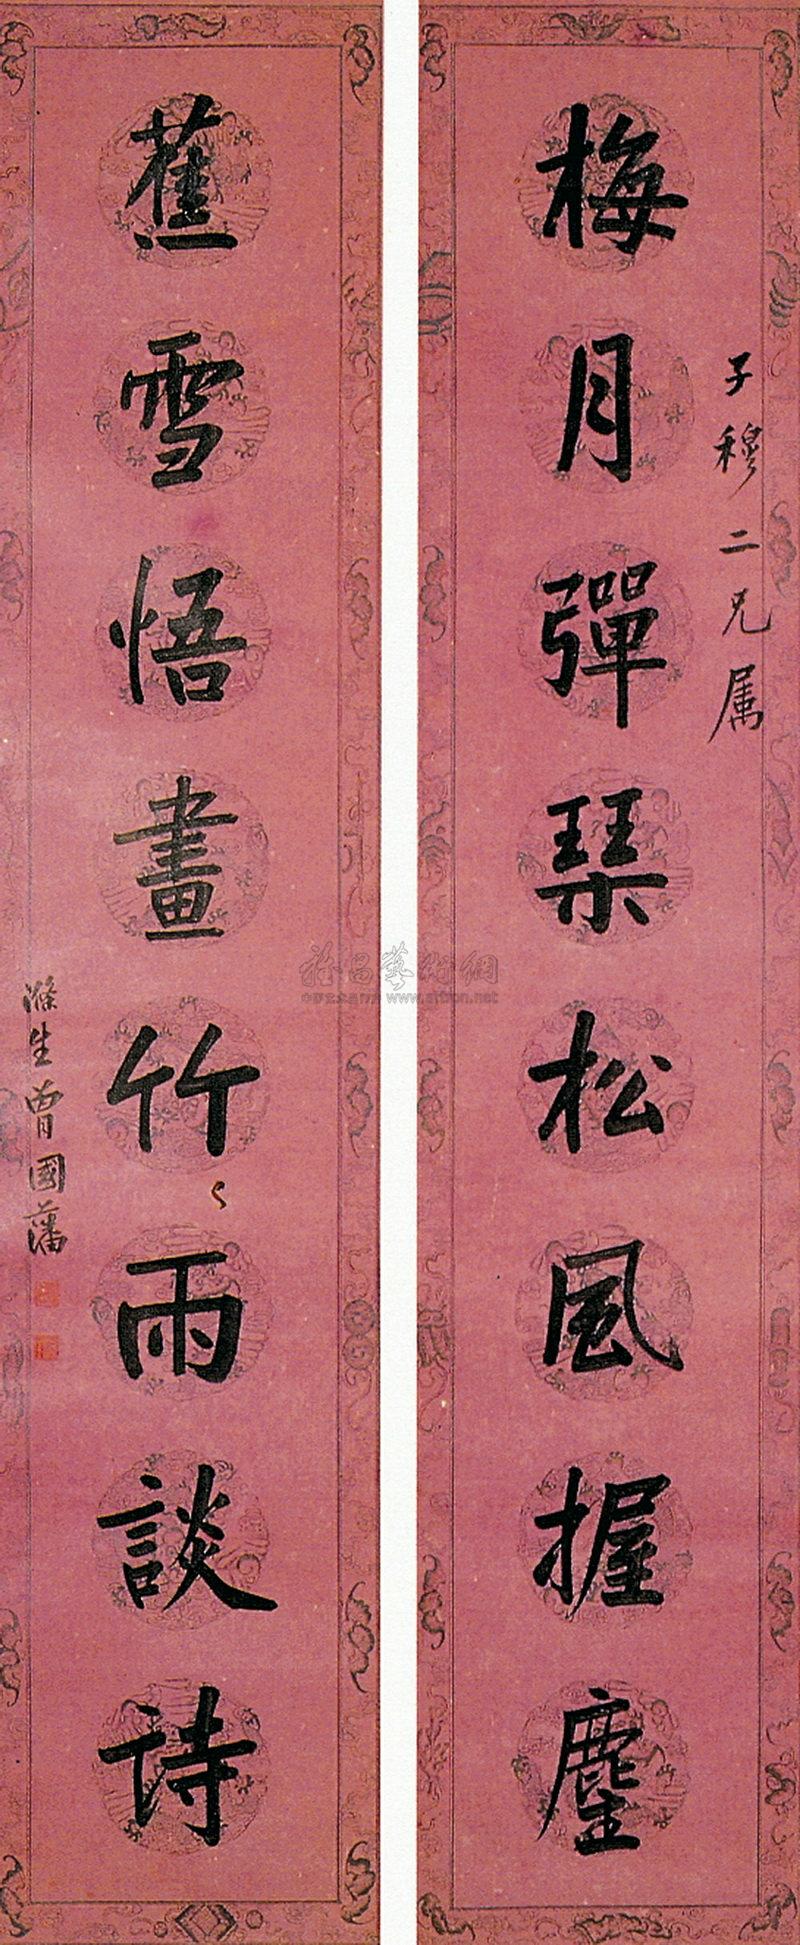 子穆二兄属
梅月彈琹松風握麈
蕉雪悟畫竹雨談詩
滌生曾國藩
www.artron.net